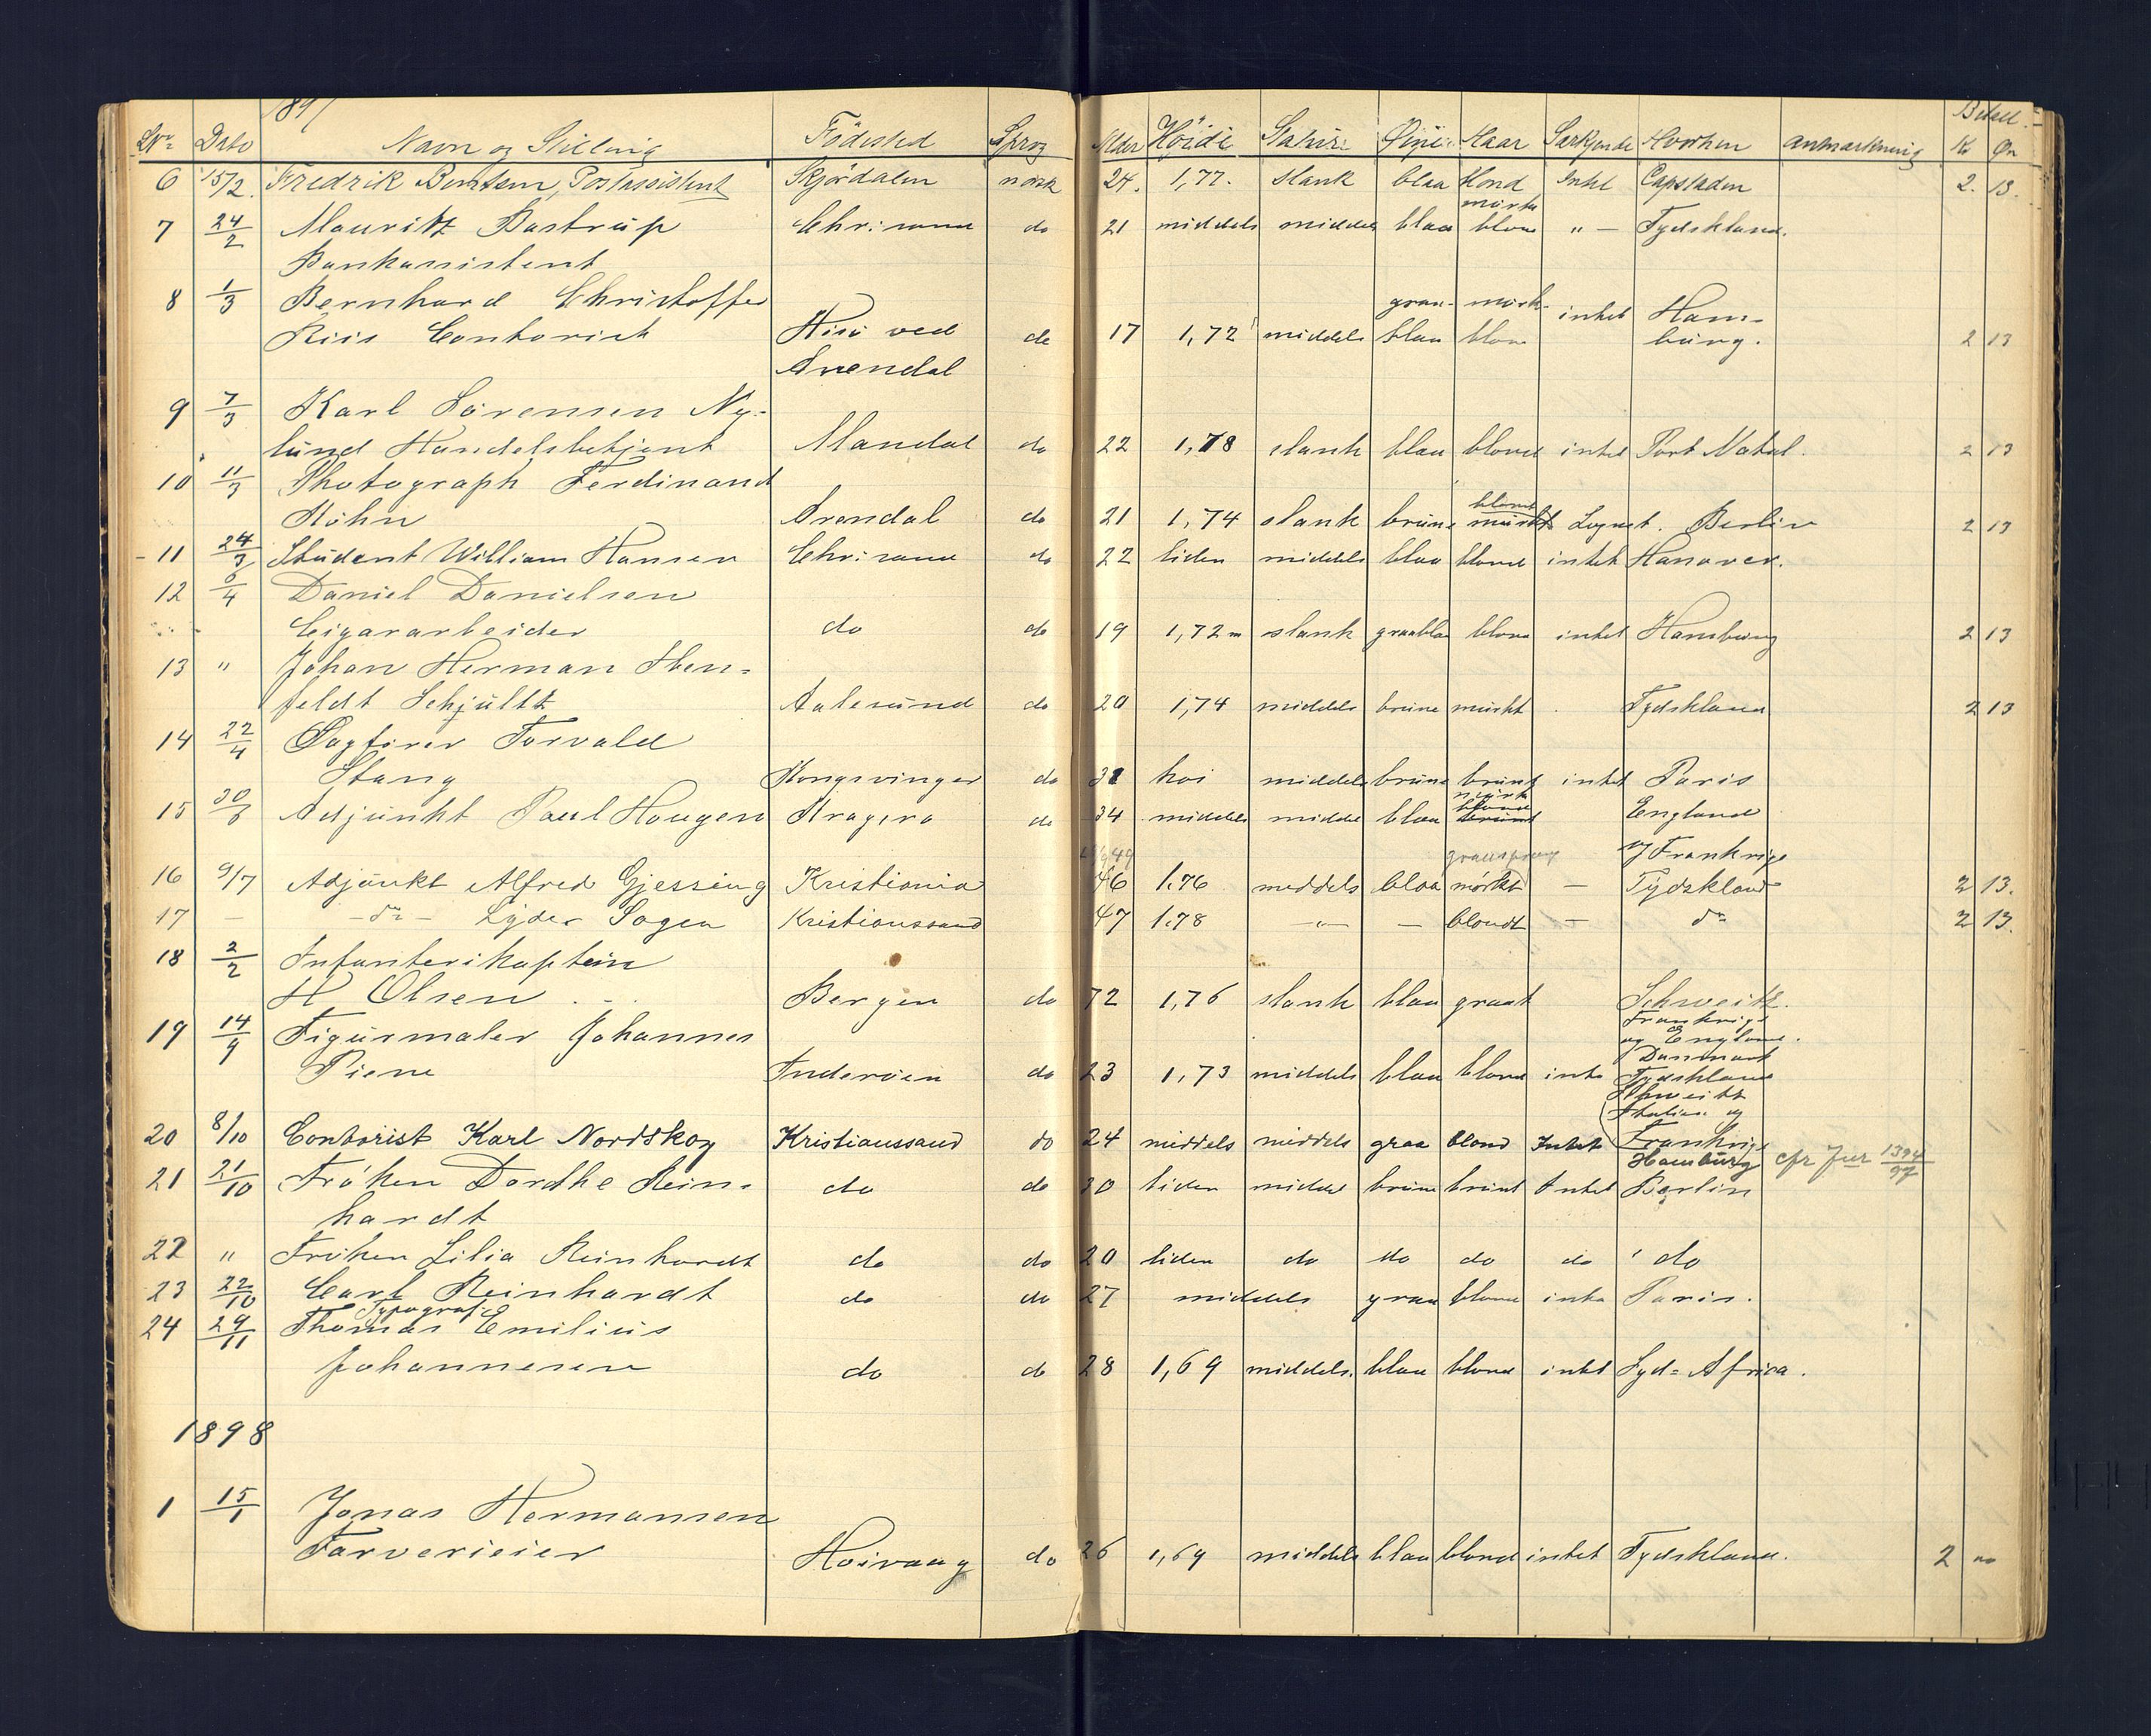 1897
Nr Dato Navn og Stilling Födested Sprog Alder Höide Statur Øine Haar Særkjende Hvorhen anmærkning Betalt Kr Ør
6 15/2. Fredrik Bentsen, Postassistent Skjördalen norsk 24. 1,77. Slank blaa blond Intet Capstaden 2. 13.
mörk
7 24/2 Mauritz Bastrup Chr:sand do 21 middels middels blaa blond " — Tydskland.
Bankassistent
8 1/3 Bernhard Christoffer graa- mörk- intet Ham-
Riis Contorist Hisö ved do 17 1,72 middels blaa blond burg. 2 13
Arendal
9 7/3 Karl Sörensen Ny-
lund Handelsbetjent Mandal do 22 1,78 slank blaa blond intet Port Natal. 2 13
10 11/3 Photograph Ferdinand
blondt
Köhn Arendal do 21 1,74 slank brune mörkt Berlin 2 13
11 24/3 Student William Hansen Chr:sand do 22 liden middels blaa blond intet Hanover.
12 6/4 Daniel Danielsen
Cigararbeider do do 19 1,72 m slank graablaa blond intet Hamburg 2 13
13 " Johan Herman
feldt Schjultz Aalesund do 20 1,74 middels brune mörkt Tydskland 2 13
14 22/4 Sagförer Torvald
Stang Kongsvinger do 31 höi middels brune brunt intet Paris
mörk
blond
15 30/6 Adjunkt Paul Haugen Kragerö do 34 middels middel blaa brunt England
og Frankrige
16 9/7 Adjunkt Alfred Gjessing Kristiania 46 1.76 middels blaa mörkt — Tydskland 2 13.
17 — — do — Lyder Sagen Kristianssand 47 1.78 — " — — blondt — do 2 13.
18 2/2 Infanterikaptein
H. Olsen Bergen do 72 1,76 slank blaa graat Schweitz.
Frankrige
og England.
19 14/9 Figurmaler Johannes
Danmark
Piene Inderöen do 23 1,73 middels blaa blond inte Tydskland
Schweitz
Italien og
20 8/10 Contorist Karl Nordskog Kristianssand do 24 middels middels graa blond Intet Frankrige
Hamburg cfr Jur 1394/97
21 21/10 Fröken Dordthe Rein- do do 30 liden middel brune brunt Intet Berlin
hardt
22 " Fröken Lilia Reinhardt do do 20 liden do do do do do
23 22/10 Carl Reinhardt do do 27 middels graa blond inte Paris.
Typograf
24 29/11 Thomas Emilius
Johannesen do do 28 1,69 middels. blaa blond intet Syd-Africa.
1898
1 15/1 Jonas Hermansen
Farverieier Höivaag do 26 1,69 middels blaa blond intet Tydskland. 2 "